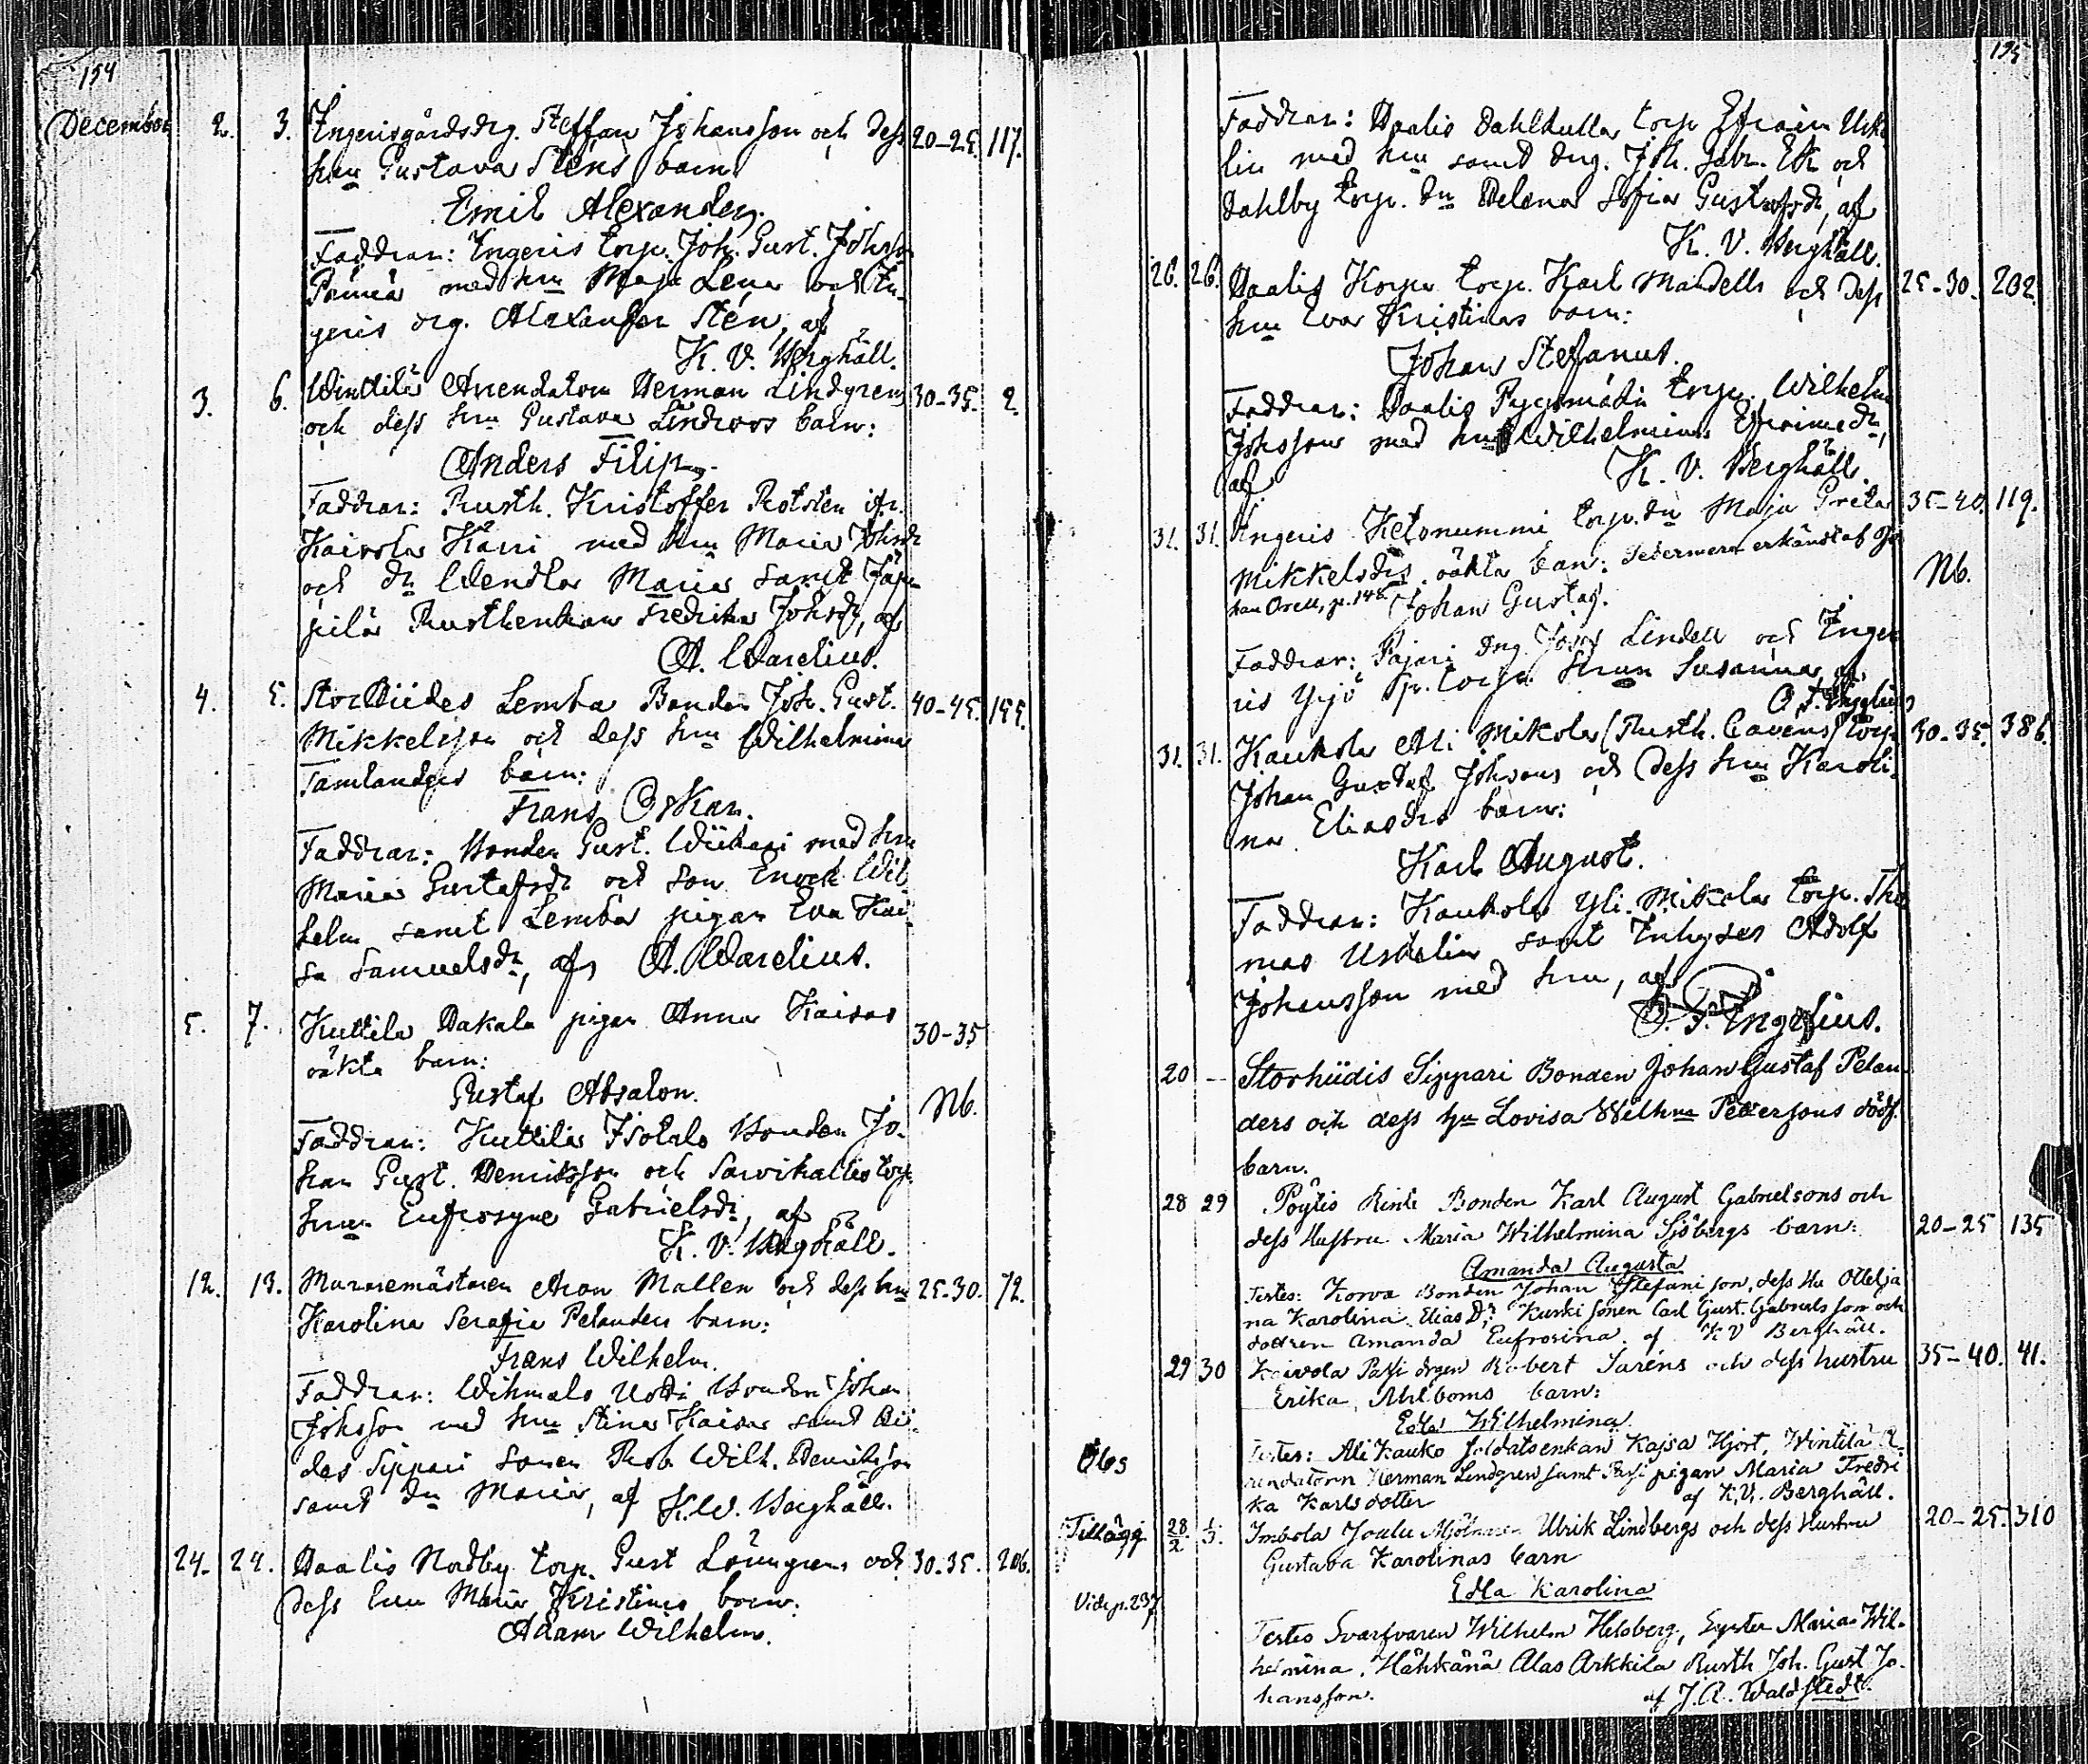 154
December 2. 3. Ingerisgårds drg. Steffan Johansson och dess 20-25. 117.
hru Gustava Stens barn
Emil Alexander.
Faddrar: Ingeris torp. Joh. Gust. Johsson
med hru Maja Lena och In-
geris drg. Alexander Sten, af
K. V. Berghäll.
3. 6. Winttilä Arendatorn Herman Lindgrens 30-35. 2.
och dess hru Gustava Lindroos barn:
Anders Filip.
Faddrar: Rusth. Kristoffer Rotsten ifr.
Kaivola Kärri med hru Maria Johsdr
och dr Wendla Maria samt Jäp-
pilä Rusth.enkan Fredrika Johsdr, af
A. Warelius.
4. 5. Storhiides Lemba Bonden Joh. Gust. 40-45. 155.
Mikkelsson och dess hru Wilhelmina
Tamlanders barn:
Frans Oskar.
Faddrar: Bonden Gust. Wiikari med hru
Maria Gustafsdr och son Enock Wil-
helm samt Lemba pigan Eva Kai-
sa Samuelsdr, af A. Warelius.
5. 7. Kuttila Hakala pigan Anna Kaisas 30-35
oäkta barn:
Gustaf Absalon. Nb.
Faddrar: Kuttila Isotalo Bonden Jo-
han Gust. Henriksson och Savikallio torp.
hrun Eufrosyne Gabrielsdr, af
K. V. Berghäll.
12. 13. Muraremästaren Aron Mallen och dess hru 25.30. 72.
Karolina Serafia Pelanders barn:
Frans Wilhelm.
Faddrar: Wihmalo Uoti Bonden Johan
Johsson med hru Stina Kaisa samt Hii-
des Sippari sonen Rob. Wilh. Henriksson
samt dr Maria, af K.W. Berghäll.
24. 24. Haalis Nodby torp. Gust Löfngrens och 30-35. 206.
dess hru Maria Kristinas barn:
Adam Wilhelm.
155
Faddrar: Haalis Dahlkulla torp. Efraim Uske-
lin med hru samt drg. Joh. Gabr. Ek och
Dahlby torp. dr Helena Sofia Gustafsdr, af
K. V. Berghäll.
26. 26. Haalis Korpi torp. Karl Mandells och dess 25-30. 202.
hru Eva Kristinas barn:
Johan Stefanus.
Faddrar: Haalis torp. Wilhelm
Johsson med hru Wilhelmina Efraimsdr,
af K. V. Berghäll.
31. 31. Ingeris Ketonummi torp. dr Maja Greta 35-40. 119.
Mikkelsdrs oäkta barn: Sedermera erkändt af Jo-
han Orell, p. 148. Johan Gustaf. Nb.
Faddrar: Pajari drg. Josef Lindell och Inge-
ris Yrjö Sp. torp. hrun Susanna, af
O. F. Ingelius
31. 31. Kaukola Ali Mikola (Rusth. Cavéns) torp. 30-35. 386.
Johan Gustaf Johssons och dess hru Karoli-
na Eliasdrs barn:
Karl August.
Faddrar: Kaukola Yli-Mikola torp. Tho-
mas Uskelin samt Inhyses Adolf
Johansson med hru, af
O. F. Ingelius.
20 - Storhiidis Sippari Bonden Johan Gustaf Pelan-
ders och dess hu Lovisa Wilhna Pettersons dödf.
barn.
28 29 Pöytis Rinti Bonden Karl August Gabrielsons och
dess Hustru Maria Wilhelmina Sjöbergs barn: 20-25 135
Amanda Augusta
Testes: Korva Bonden Johan Stefani son, dess Hu Ottelja-
na Karolina Elias Dr: Kuski sonen Carl Gust. Gabrielsson och
dottren Amanda Eufrosina af K V Berghäll.
29 30 Kaivola Passi drgen Robert Saréns och dess hustru 35-40. 41.
Erika Ahlboms barn:
Edla Wilhelmina
Obs Testes: Ali Kauko soldatsenkan Kajsa Hjort, Wintilä A-
rendatorn Herman Lindgren samt Passi pigan Maria Fredri-
ka Karlsdotter af K.V. Berghäll.
Tillägg. 28/2 1/3. Imbola Joulu Mjölnaren Ulrik Lindbergs och dess Hustru 20-25. 310
Gustava Karolinas barn
Edla Karolina
Vide p. 237
Testes Svarfvaren Wilhelm Helsberg, Syster Maria Wil-
helmina, Hähkänä Alas Arkkila Rusth Joh. Gust Jo-
hansson. af J. A. Waldstedt.